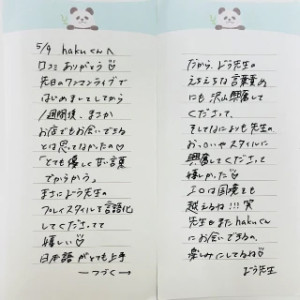 5/9 hakuくんへ
口コミありがとう♡
先日のワンマンライブで
はじめましてしてから
1週間後、まさか
お店でもお会いできる
とは思ってなかったの♡
「とても優しく甘い言葉
でからかう」
まさにどう先生の
プレイスタイルを言語化
してくださってて
嬉しい♡
日本語がとても上手
―つづく→
だから、どう先生の
えちえちな言葉責め
にも沢山興奮して
くださって、
そしてなによりも先生の
おっぱいやスタイルに
興奮してくださって
嬉しかった♡
エロは国境をも
越えるね!!!笑
先生もまたhakuくん
にお会いできるの、
楽しみにしてるね♡
どう先生